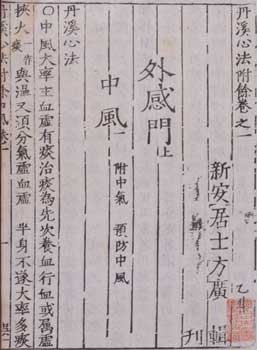 丹溪心法附餘卷之一
新安居士方廣 輯刊
外感門上
中風一 附中氣 預防中風
丹溪心法
○中風大率主血虛有痰治痰為先次養血行血或屬虛
挾火一作痰與濕又須分氣虛血虛 半身不遂大率多痰
丹溪心法附餘中風卷一